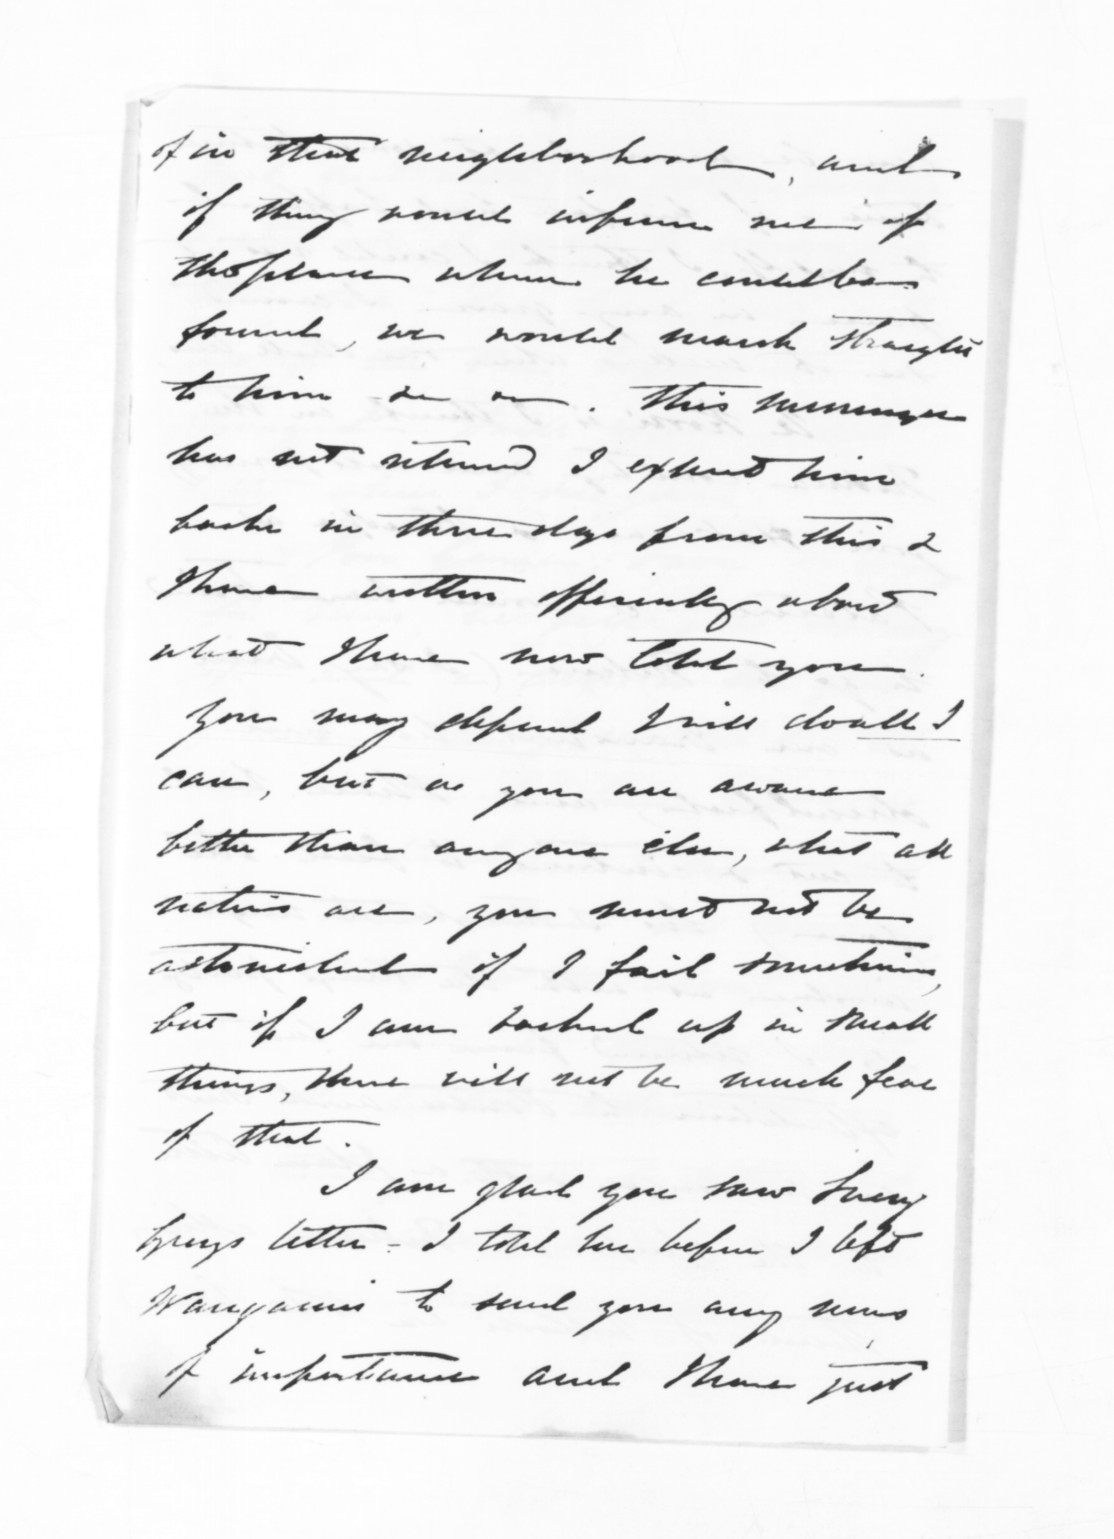 if in that neighborhood, and
if they would inform me of
the place where he could be
found, we would march straight
to him &c &c. This messenger
has not returned I expect him
back in three days from this &
I have written officially about
what I have now told you.
You may depend I will do all I
can, but as you are aware
better than anyone else, what all
natives are, you must not be
astonished if I fail sometimes,
but if I am backed up in small
things, there will not be much fear
of that.
I am glad you saw
letter - I told her before I left
Wanganui to send you any news
of importance and I have just